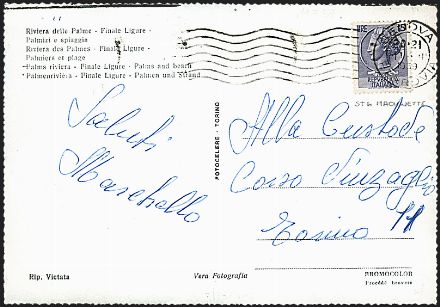 Riviera delle Palme - Finale Ligure -
Palmizi e spiaggia
Riviera des Palmes - Finale Ligure -
Palmiers et plage
Palms riviera - Finale Ligure - Palms and beach
Palmenriviera - Finale Ligure - Palmen und Strand
GENOVA
21
ST & MACQUETTE
Saluti
Marchello
FOTOCELERE - TORINO
Alla Custode
Corso Vinzaglio
Torino 11
Rip. Vietata
Vera Fotografia
PROMOCOLOR
Procédé breveté